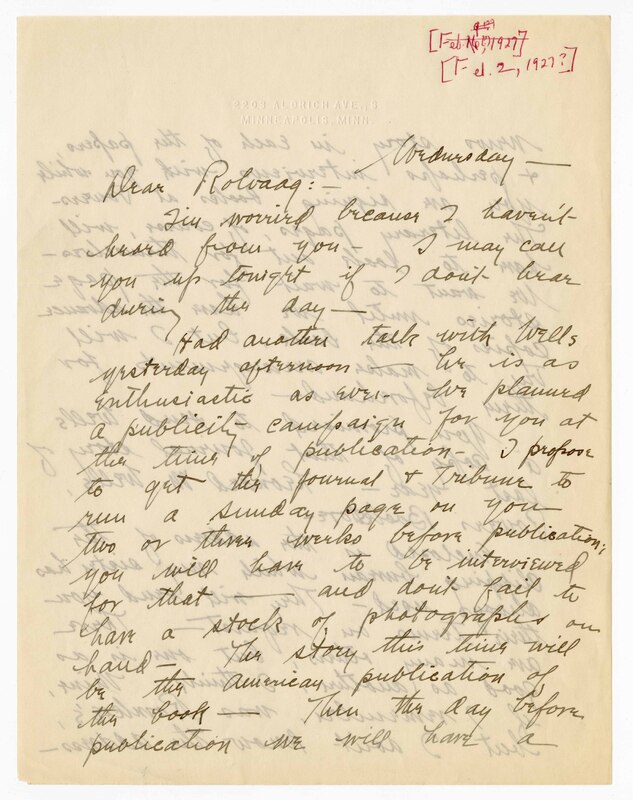 [Feb. 1927]
[Feb. 2, 1927?]
2203 ALDRICH AVE., S
MINNEAPOLIS, MINN.
Wednesday —
Dear Rolvaag: —
I'm worried because I haven't
heard from you — I may call
you up tonight if I don't hear
during the day —
Had another talk with Wells
yesterday afternoon — he is as
enthusiastic as ever. We planned
a publicity campaign for you at
the time of publication — I propose
to get the Journal & Tribune to
run a Sunday page on you
two or three weeks before publication;
you will have to be interviewed
for that — and don't fail to
have a stock of photographs on
hand — The story this time will
be the American publication of
the book — Then the day before
publication we will have a